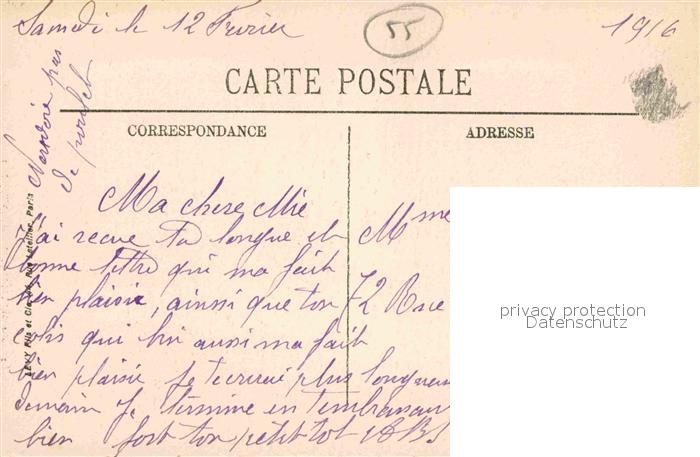 Samedi le 12 Fevrier 1916
55
CARTE POSTALE
CORRESPONDANCE
ADRESSE
N'envoie pas
de poulet
LEVY Fils et Cie, Rue Letellier, Paris
Ma chere Mie
J'ai recue ta longue et
bonne lettre qui ma fait
bien plaisir, ainsi que ton
colis qui lui aussi ma fait
bien plaisir. Je tecrirai plus longuem
demain Je termine en tembrassan
bien fort ton petit tot
Mme
72 Rue
privacy protection
Datenschutz